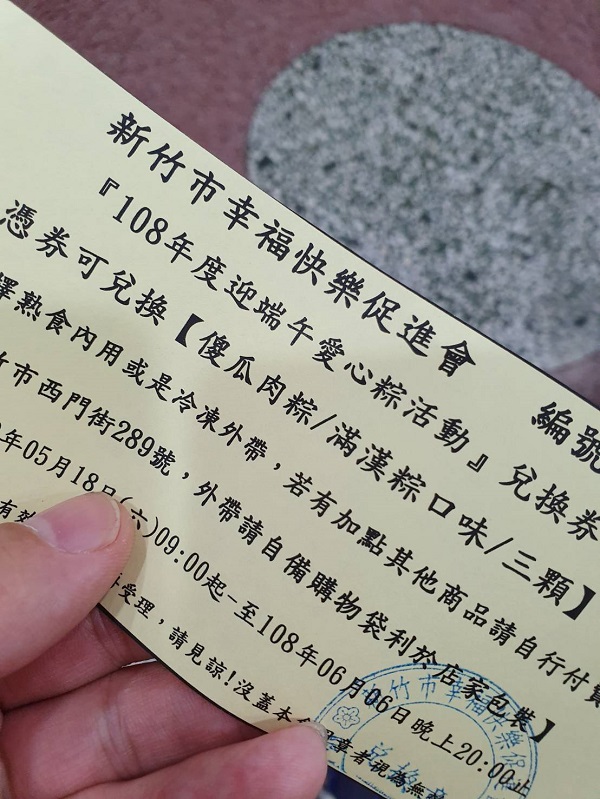 新竹市幸福快樂促進會 編號
『108年度迎端午愛心粽活動』兌換券
憑券可兌換【傻瓜肉粽/滿漢粽口味/三顆】
擇熟食內用或是冷凍外帶，若有加點其他商品請自行付費
竹市西門街289號，外帶請自備購物袋利於店家包裝】
年05月18日(六)09:00起-至108年06月06日晚上20:00止
受理，請見諒!沒蓋本會 者視為無
竹市幸福快樂促
兌換章